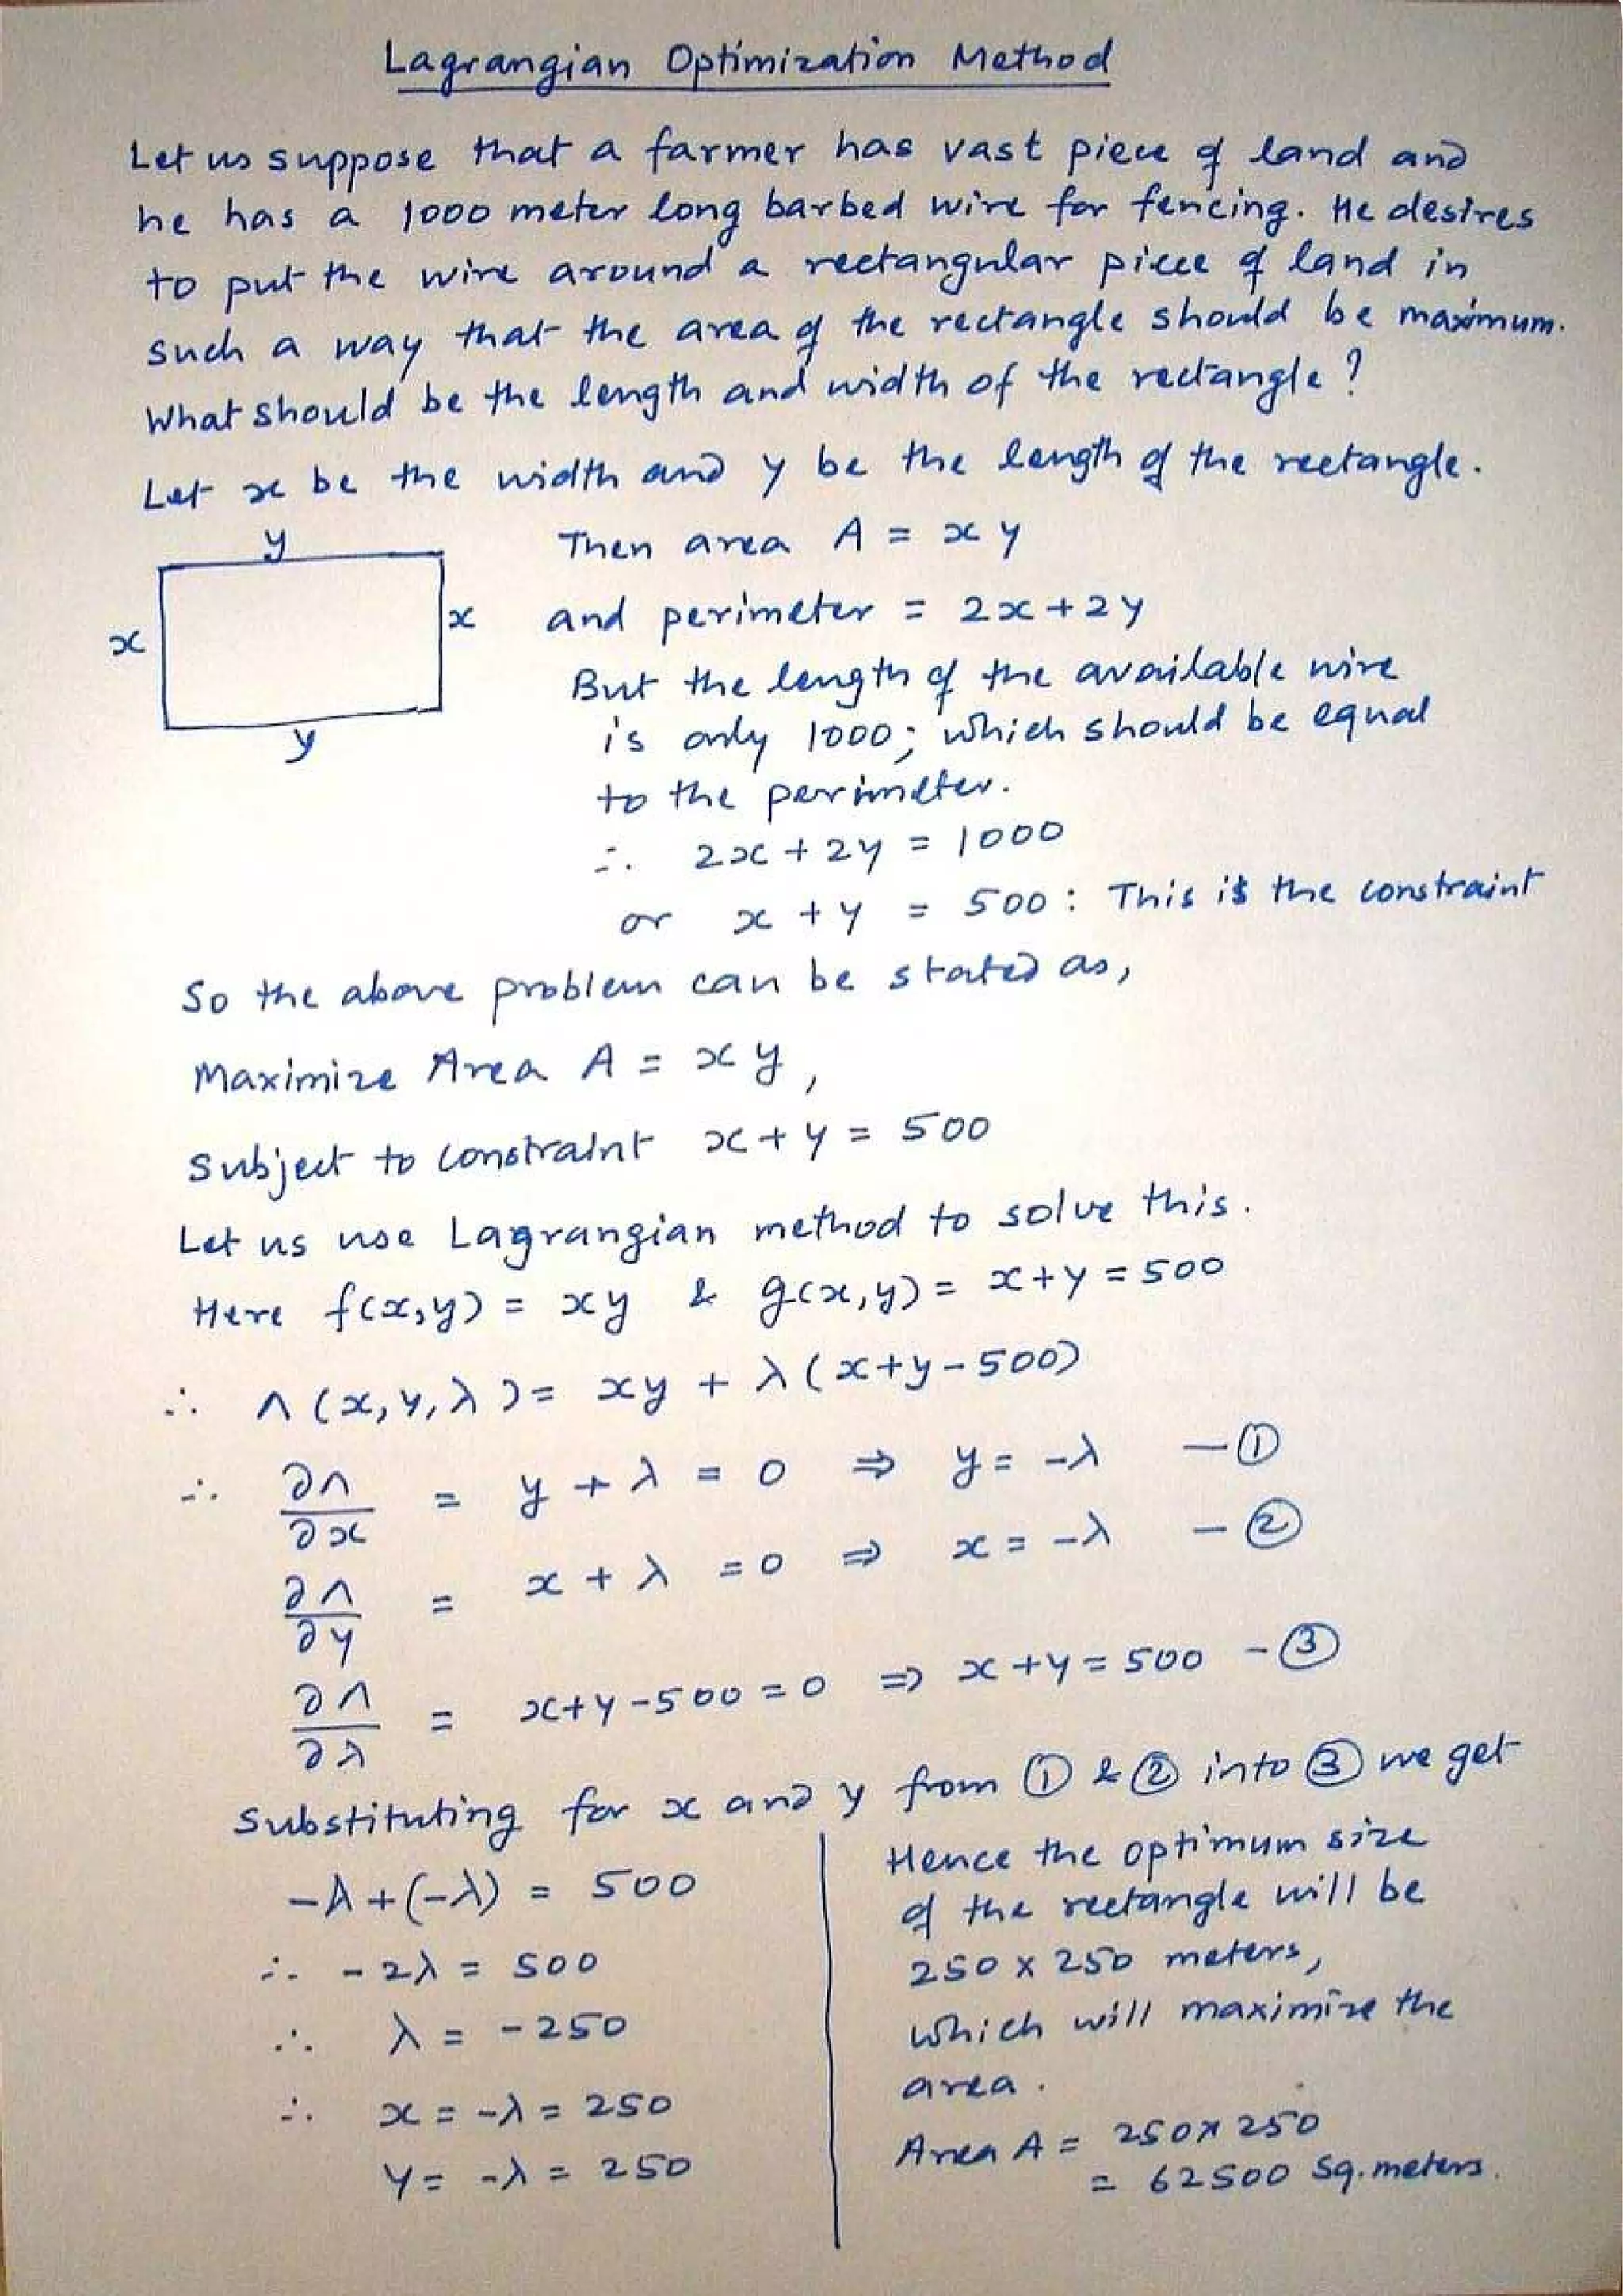 Lagrangian Optimization Method
Let us suppose that a farmer has vast piece of land and
he has a 1000 meter long barbed wire for fencing. He desires
to put the wire around a rectangular piece of land in
such a way that the area of the rectangle should be maximum.
What should be the length and width of the rectangle?
Let x be the width and y be the length of the rectangle.
y
Then area A = xy
x
x
and perimeter = 2x+2y
But the length of the available wire
y
is only 1000; which should be equal
to the perimeter.
∴ 2x + 2y = 1000
or x + y = 500 : This is the constraint
So the above problem can be stated as,
Maximize Area A = xy,
Subject to constraint x + y = 500
Let us use Lagrangian method to solve this.
Here f(x,y) = xy & g(x,y) = x+y = 500
∴ Λ(x,y,λ) = xy + λ(x+y-500)
∴ ∂Λ/∂x = y + λ = 0 ⇒ y = -λ - ①
∂Λ/∂y = x + λ = 0 ⇒ x = -λ - ②
∂Λ/∂λ = x+y-500 = 0 ⇒ x+y = 500 - ③
Substituting for x and y from ① & ② into ③ we get
-λ+(-λ) = 500
∴ -2λ = 500
∴ λ = -250
∴ x = -λ = 250
y = -λ = 250
Hence the optimum size
of the rectangle will be
250 x 250 meters,
which will maximize the
area.
Area A = 250x250
= 62500 Sq.meters.